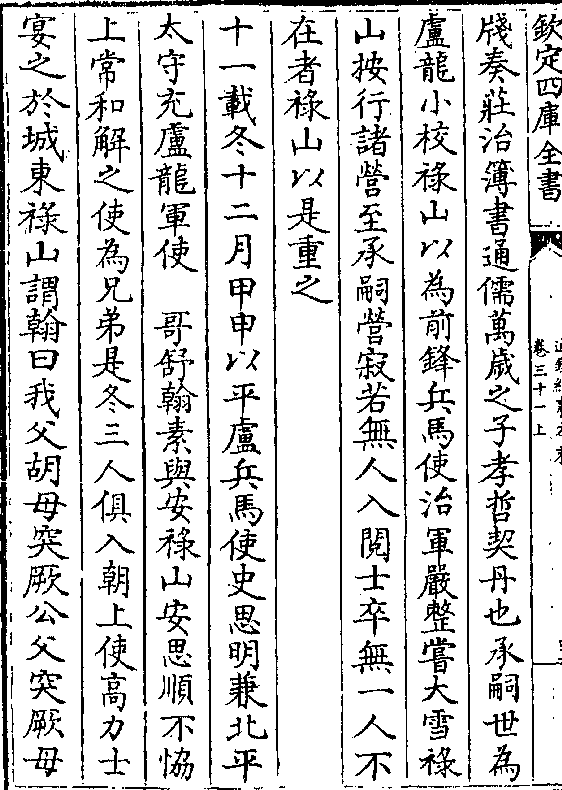 欽定四庫全書
卷三十一上
牋奏莊治簿書通儒萬歲之子孝哲契丹也承嗣世為
盧龍小校祿山以為前鋒兵馬使治軍嚴整嘗大雪祿
山按行諸營至承嗣營寂若無人入閱士卒無一人不
在者祿山以是重之
十一載冬十二月甲申以平盧兵馬使史思明兼北平
太守充盧龍軍使　哥舒翰素與安祿山安思順不恊
上常和解之使為兄弟是冬三人俱入朝上使高力士
宴之於城東祿山謂翰曰我父胡母突厥公父突厥母